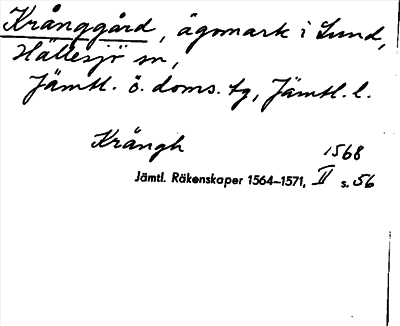 Krånggård, ägomark i Lund,
Hällesjö sn,
Jämtl. ö. doms. tg, Jämtl. l.
Krångh 1568
Jämtl. Räkenskaper 1564–1571, II s. 56